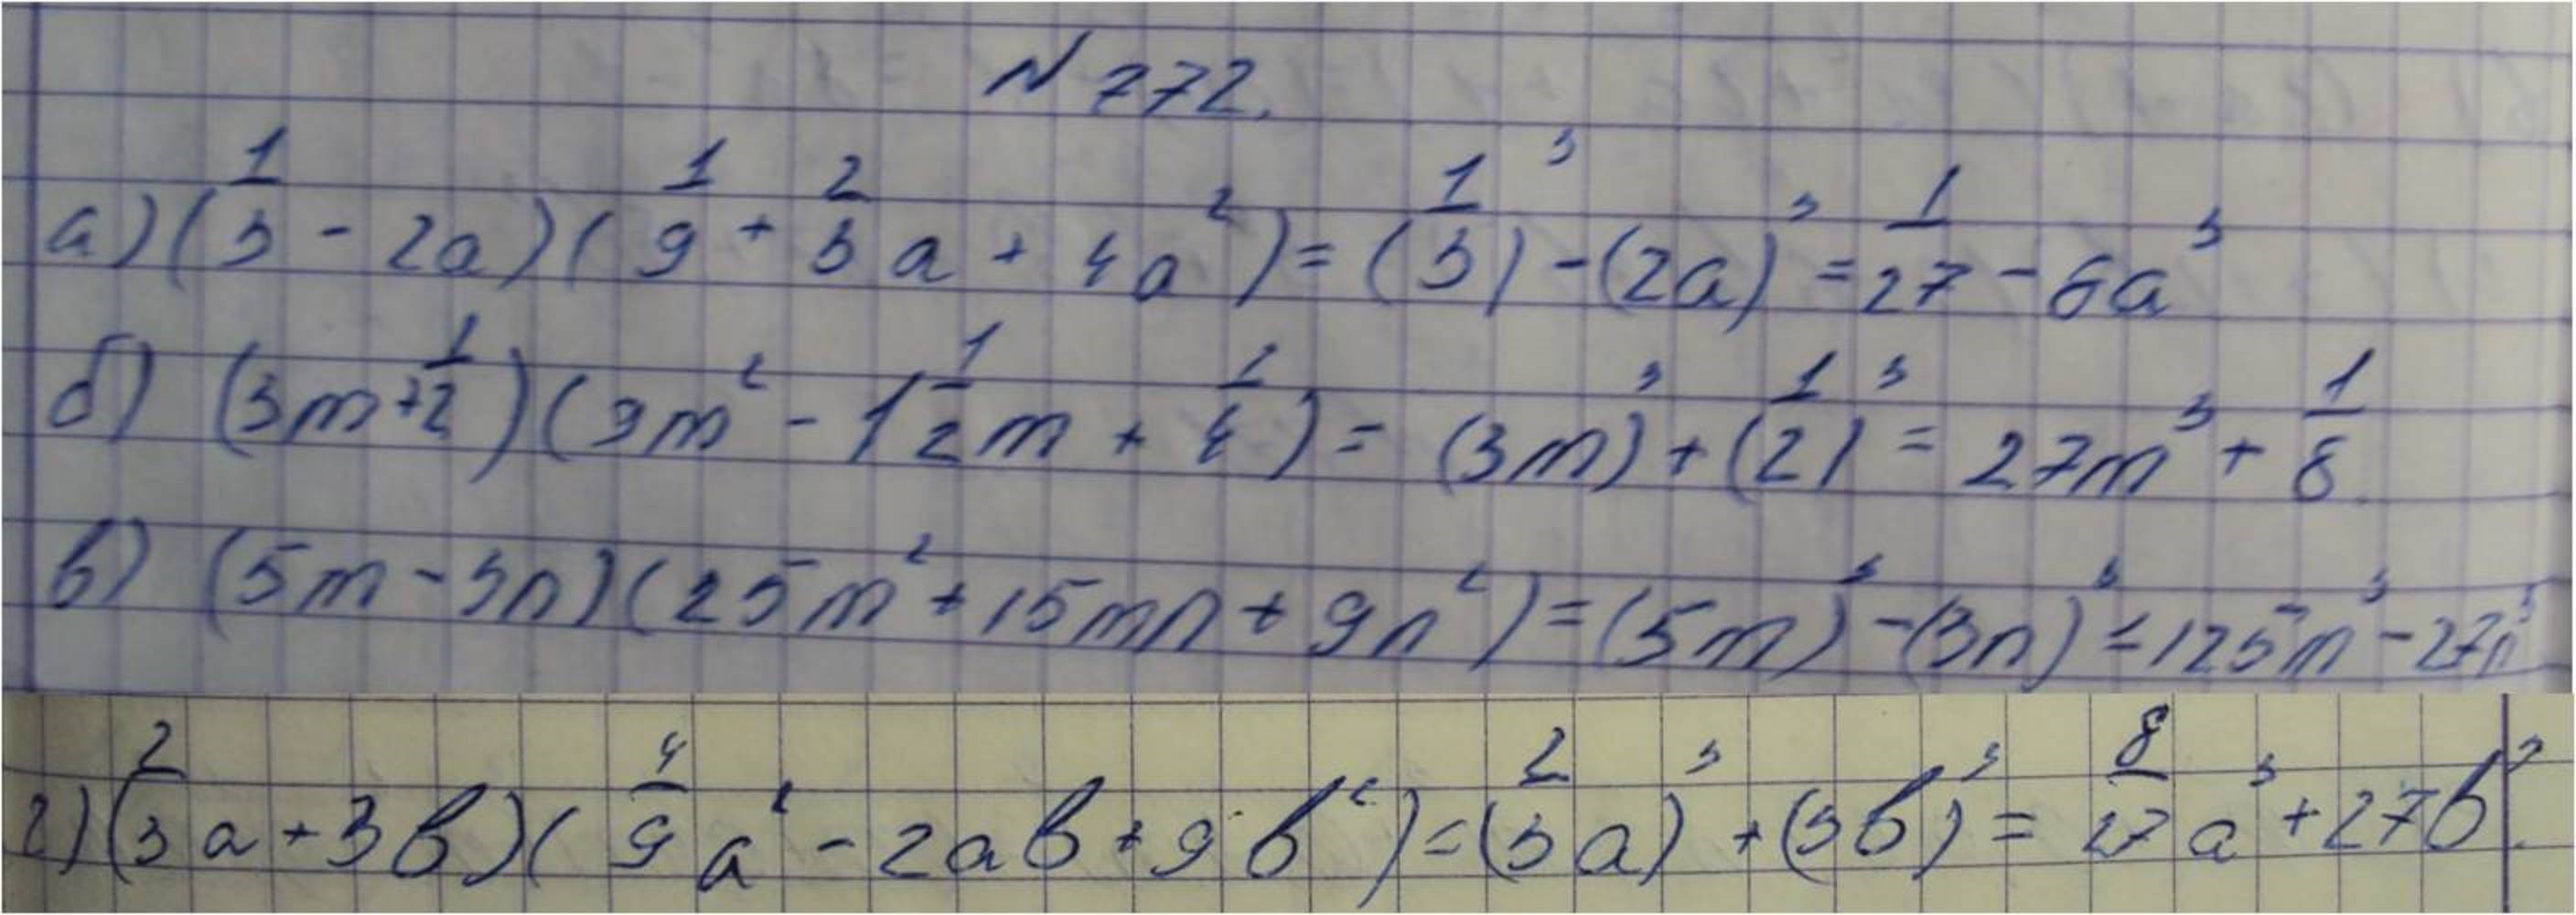 № 772.
а) (1/3 - 2a)(1/9 + 2/3 a + 4a²) = (1/3)³ - (2a)³ = 1/27 - 8a³
б) (3m + 1/2)(9m² - 1 1/2 m + 1/4) = (3m)³ + (1/2)³ = 27m³ + 1/8.
в) (5m - 3n)(25m² + 15mn + 9n²) = (5m)³ - (3n)³ = 125m³ - 27n³
г) (2/3 a + 3b)(4/9 a² - 2ab + 9b²) = (2/3 a)³ + (3b)³ = 8/27 a³ + 27b³.